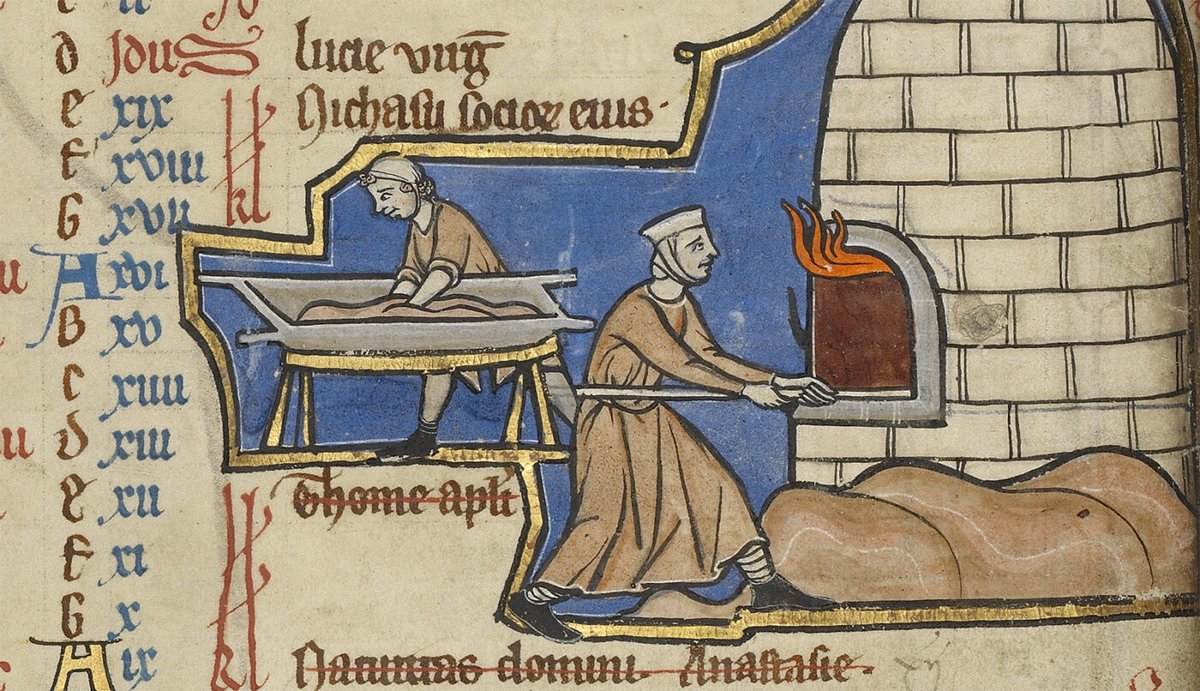 d Idus lucie virg
e xix kl Nichasii socior eius.
f xviii
G xvii kl
A xvi
B xv
c xiiii
d xiii
e xii kl Thome apli
f xi
G x
A ix kl Natiuitas domini. Anastasie.